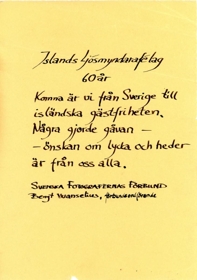 Islands Ljósmyndarafélag
60 år
Komna är vi från Sverige till
isländska gästfriheten.
Några gjorde gåvan –
– önskan om lycka och heder
är från oss alla.
SVENSKA FOTOGRAFERNAS FÖRBUND
Bengt Wanselius,